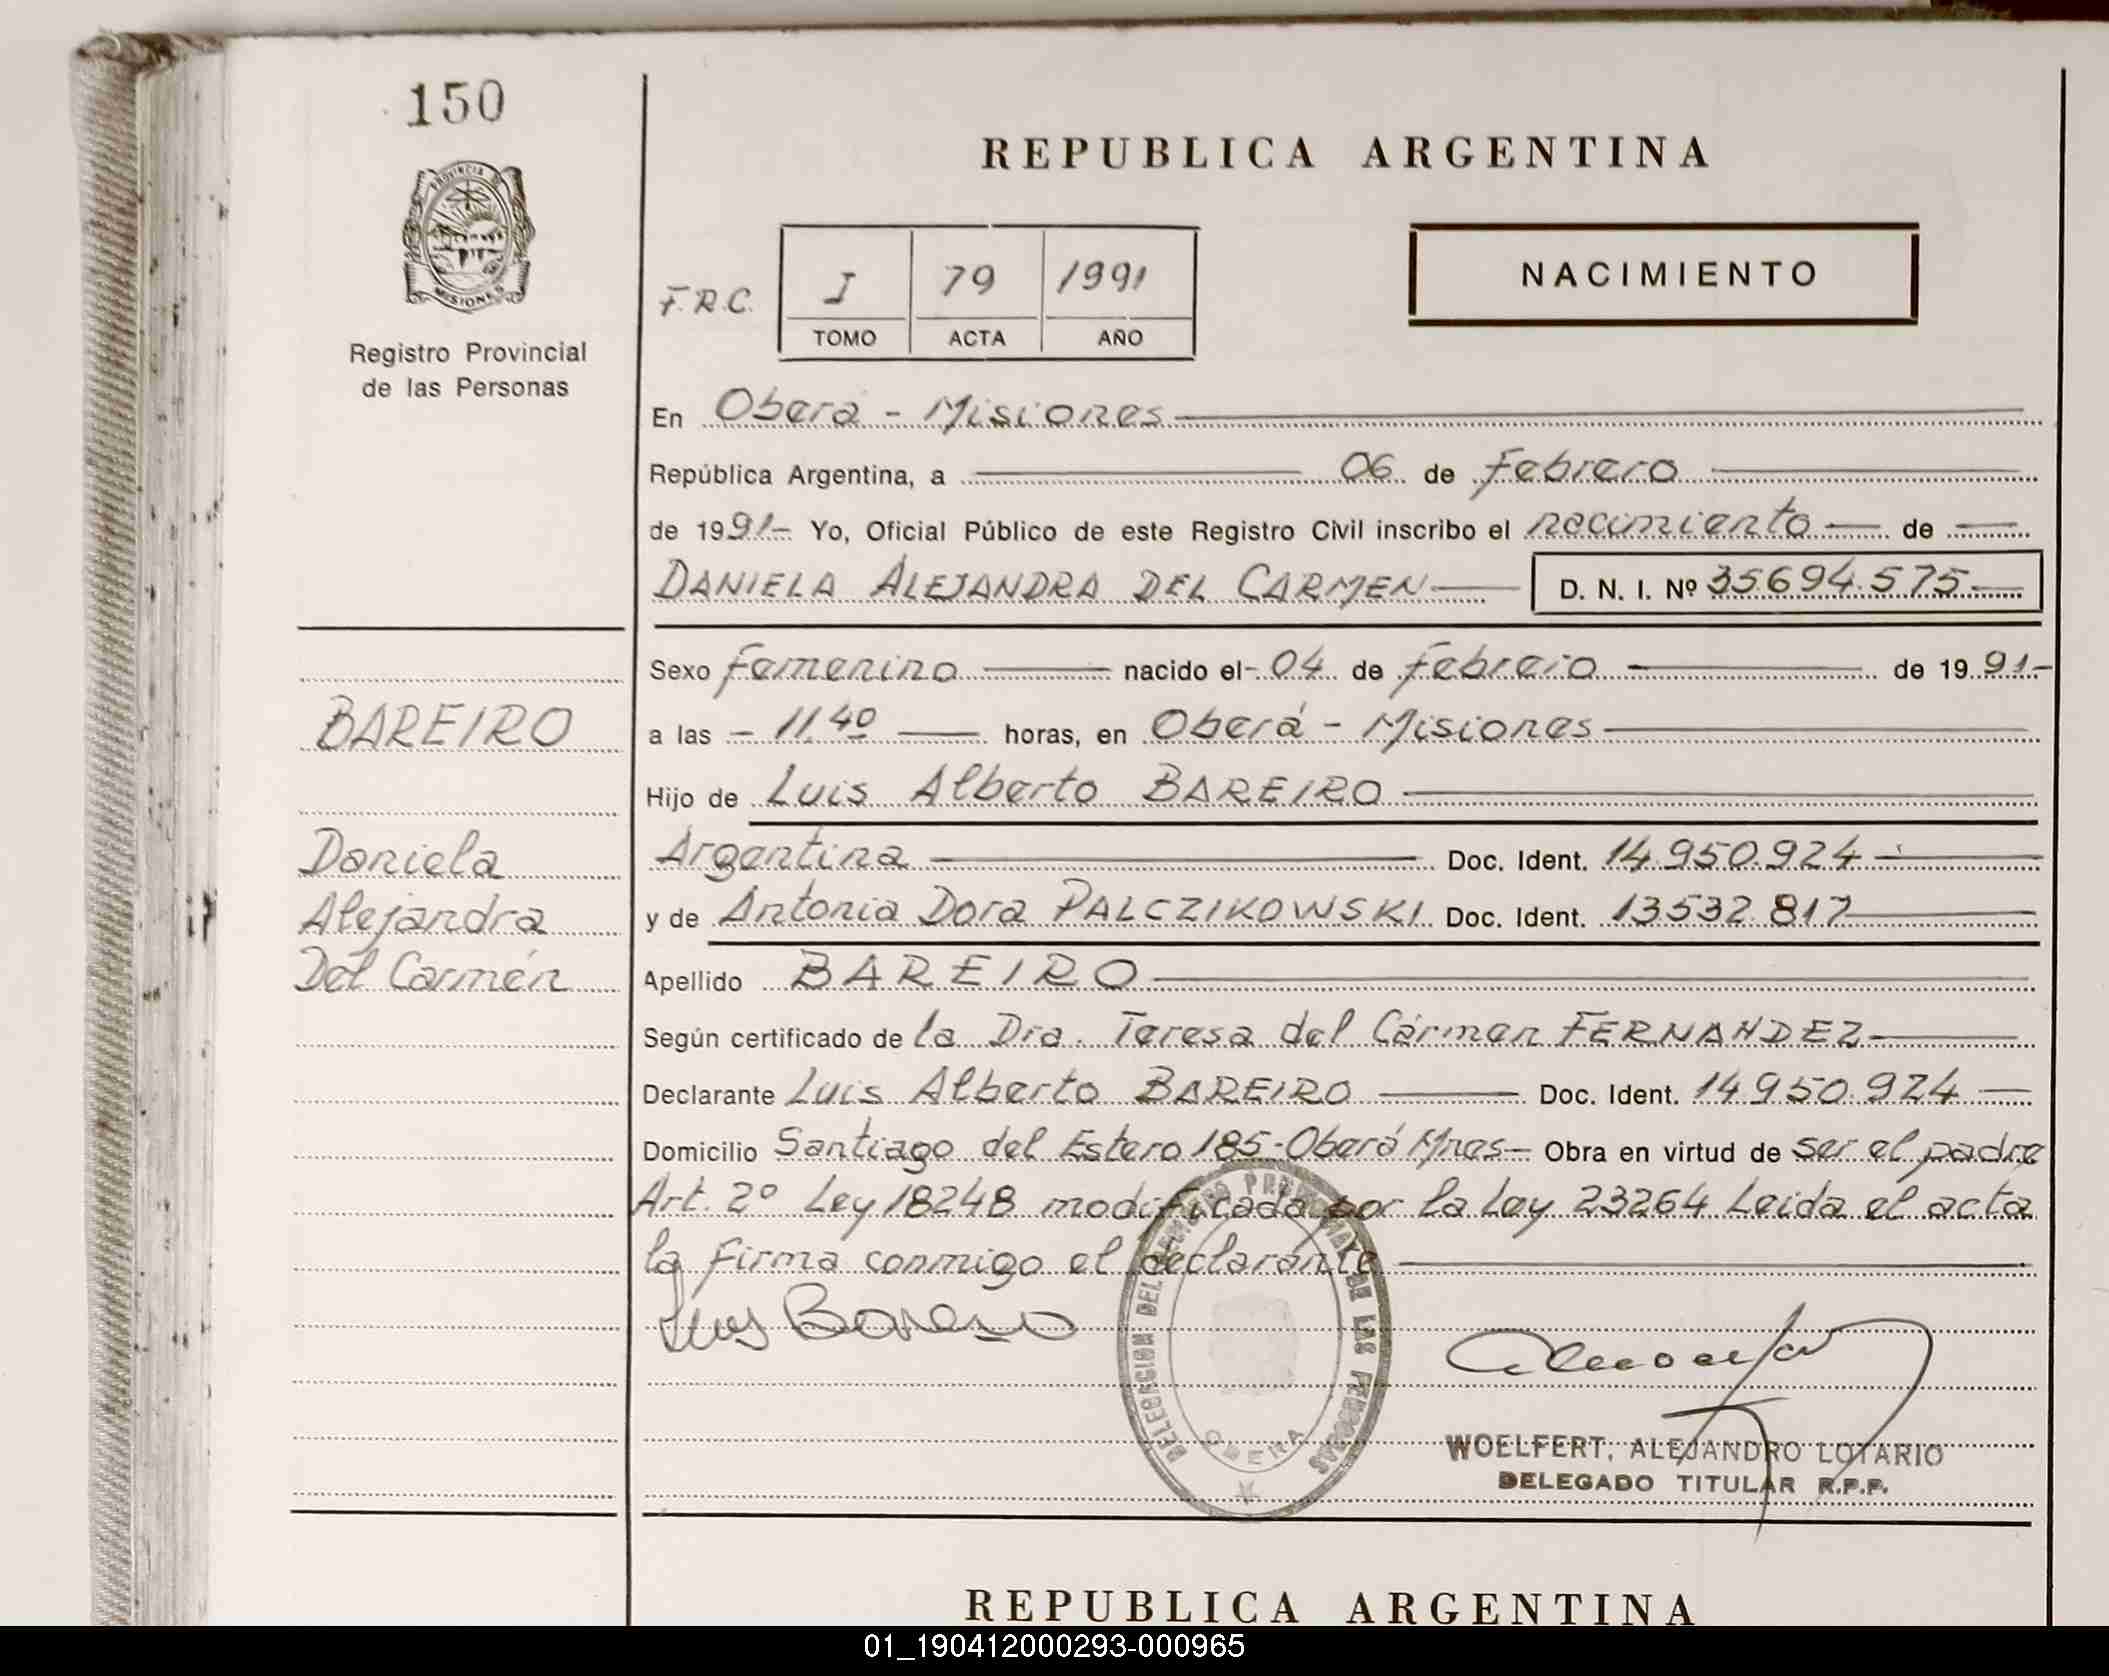 150
PROVINCIA DE
MISIONES
Registro Provincial
de las Personas
REPUBLICA ARGENTINA
NACIMIENTO
F.R.C. I 79 1991
TOMO ACTA AÑO
En Oberá - Misiones
República Argentina, a 06 de Febrero
de 1991- Yo, Oficial Público de este Registro Civil inscribo el nacimiento de
DANIELA ALEJANDRA DEL CARMEN D. N. I. Nº 35.694.575
Sexo Femenino nacido el 04 de Febrero de 1991-
BAREIRO
a las - 11.40 horas, en Oberá - Misiones
Hijo de Luis Alberto BAREIRO
Daniela
Argentina Doc. Ident. 14.950.924
Alejandra
y de Antonia Dora PALCZIKOWSKI Doc. Ident. 13.532.817
Del Carmén
Apellido BAREIRO
Según certificado de la Dra. Teresa del Cármen FERNANDEZ
Declarante Luis Alberto BAREIRO Doc. Ident. 14.950.924
Domicilio Santiago del Estero 185-Oberá Mnes- Obra en virtud de ser el padre
Art. 2º Ley 18248 modificada por la Ley 23264 Leida el acta
la firma conmigo el declarante
Luis Bareiro
DELEGACION DEL REGISTRO PROVINCIAL DE LAS PERSONAS
OBERA
WOELFERT, ALEJANDRO LOTARIO
DELEGADO TITULAR R.P.P.
REPUBLICA ARGENTINA
01_190412000293-000965